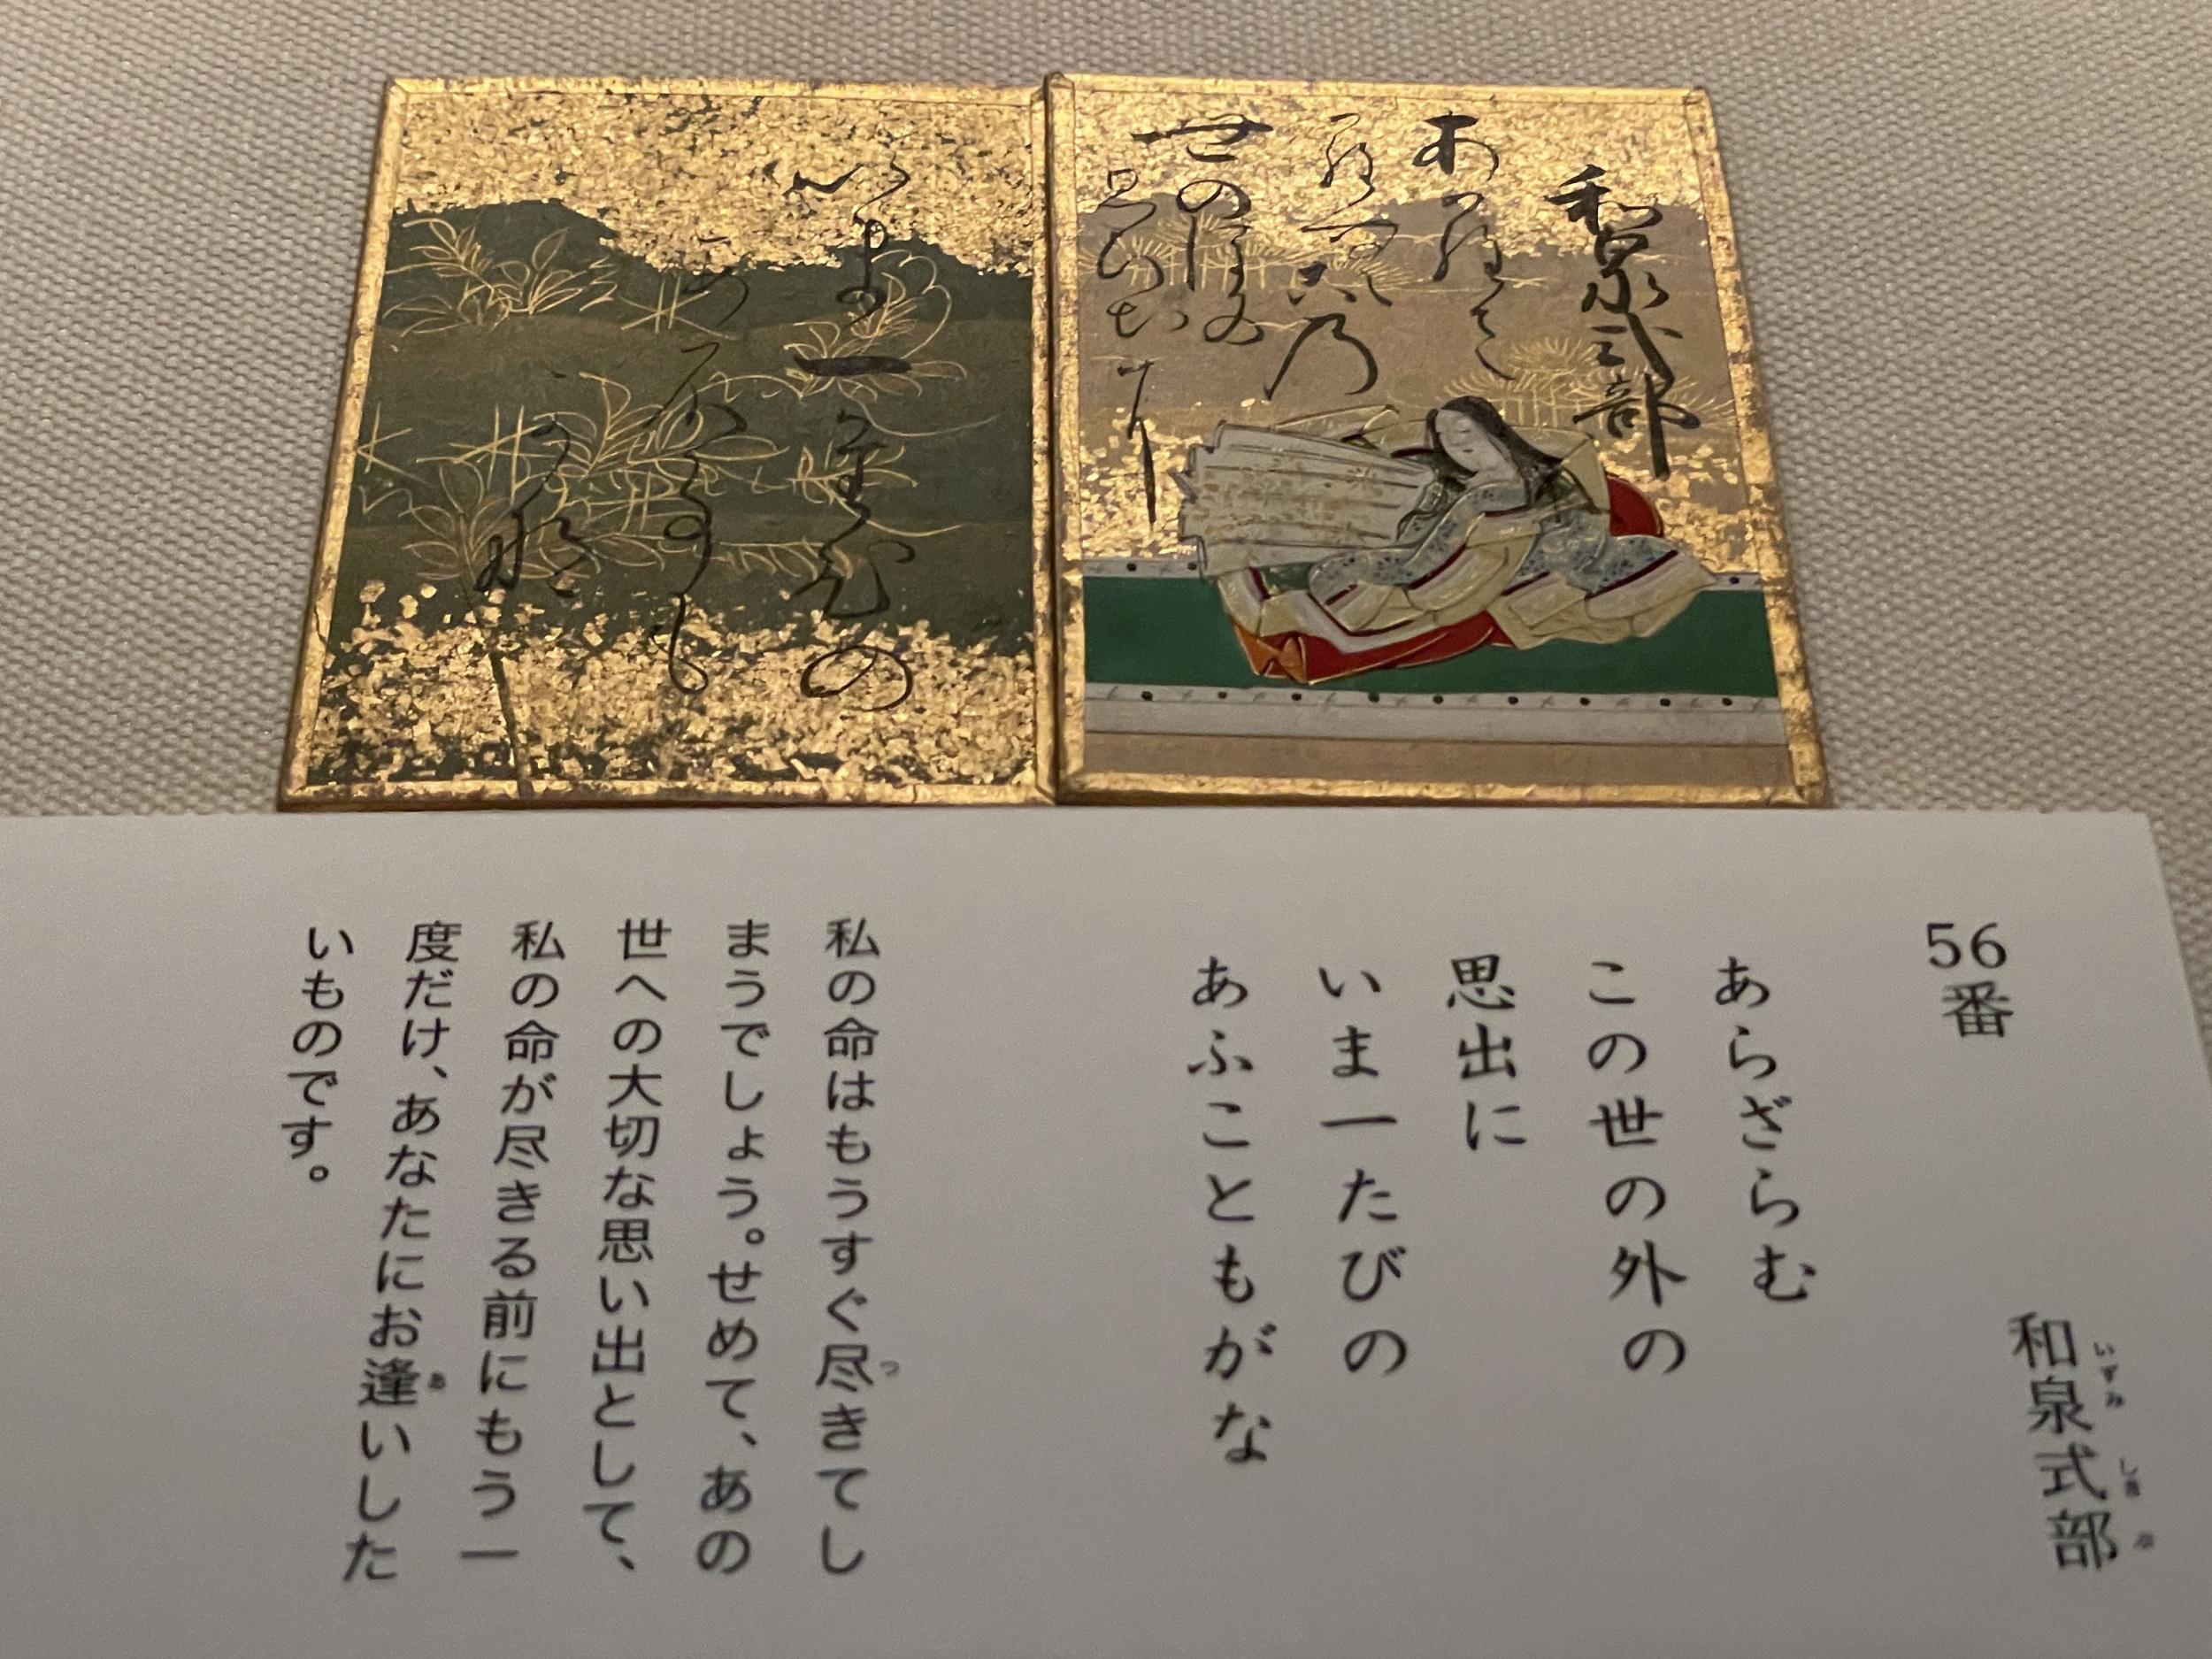 和泉式部
世のほかの
いま一たひの
あふことも
かな
56番
和泉式部
いずみしきぶ
あらざらむ
この世の外の
思出に
いま一たびの
あふこともがな
私の命はもうすぐ尽きてし
まうでしょう。せめて、あの
世への大切な思い出として、
私の命が尽きる前にもう一
度だけ、あなたにお逢いした
いものです。